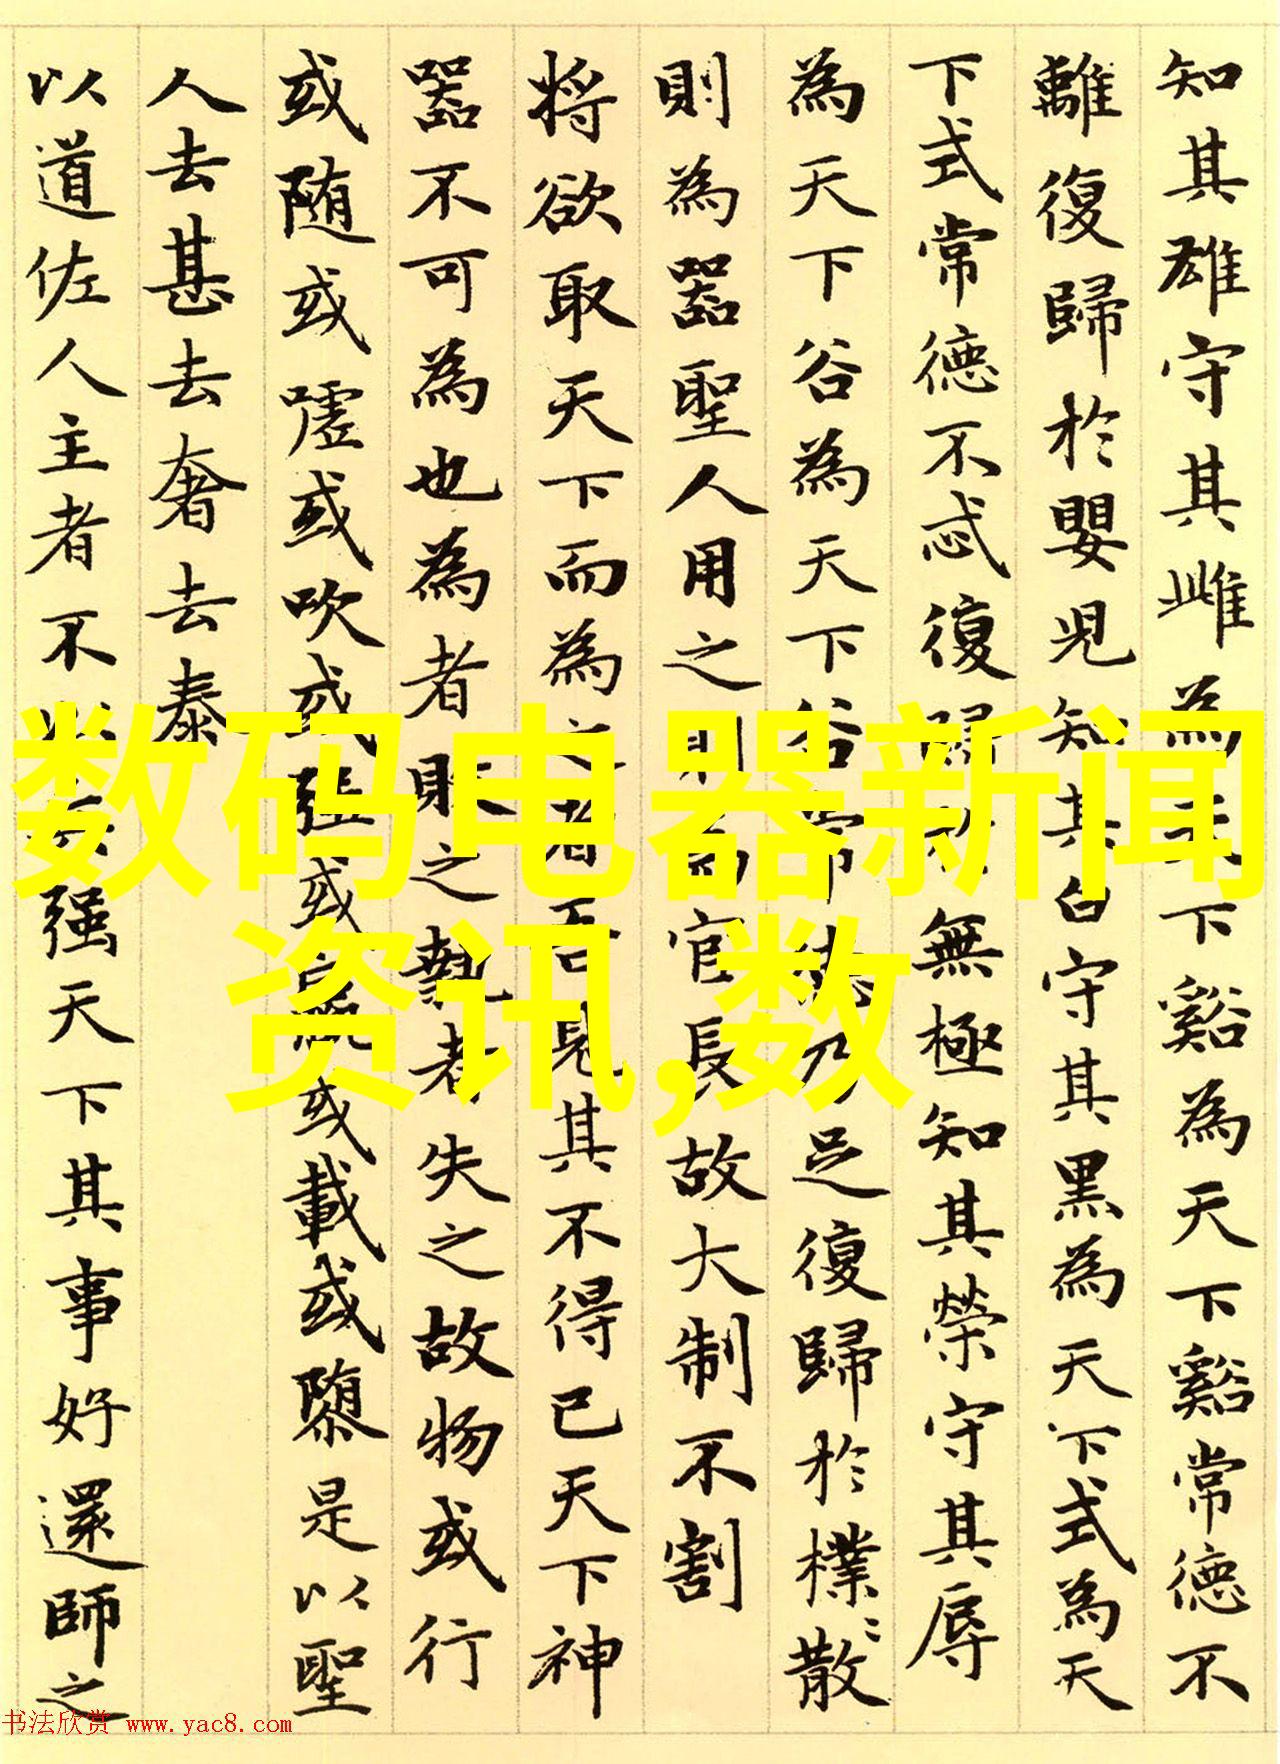 知其雄守其雌為天下谿為天下谿常德不
離復歸於嬰児知其白守其黑為天下式為天
下式常德不忒復歸於無極知其榮守其辱
為天下谷為天下谷常德乃足復歸於樸〻散
則為器聖人用之則為官長故大制不割
将欲取天下而為之者吾見其不得已天下神
器不可為也為者敗之執者失之故物或行
或随或嘘或吹或强或羸或載或隳是以聖
人去甚去奢去泰
以道佐人主者不以兵强天下其事好還師之
数码电器新闻
资讯,数
书法欣赏 www.yac8.com